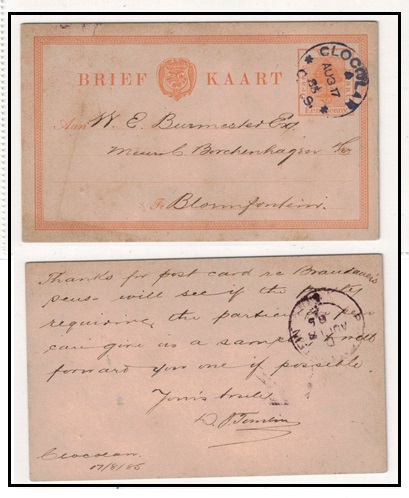 BRIEF KAART
CLOCOLAN
AUG 17
O.F.S.
Aan W. E. Burmester Esq
Messrs C. Borchenhagen & Co
Te Bloemfontein.
Thanks for post card re Brandauer's
pens will see if the
requiring the particular pen
can give us a sample & will
forward you one if possible.
Yours truly
Tomlin
Clocolan.
17/8/86